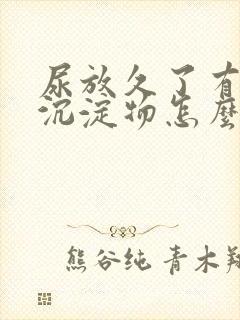 尿放久了有
沉淀物怎麼
熊谷纯 青木翔